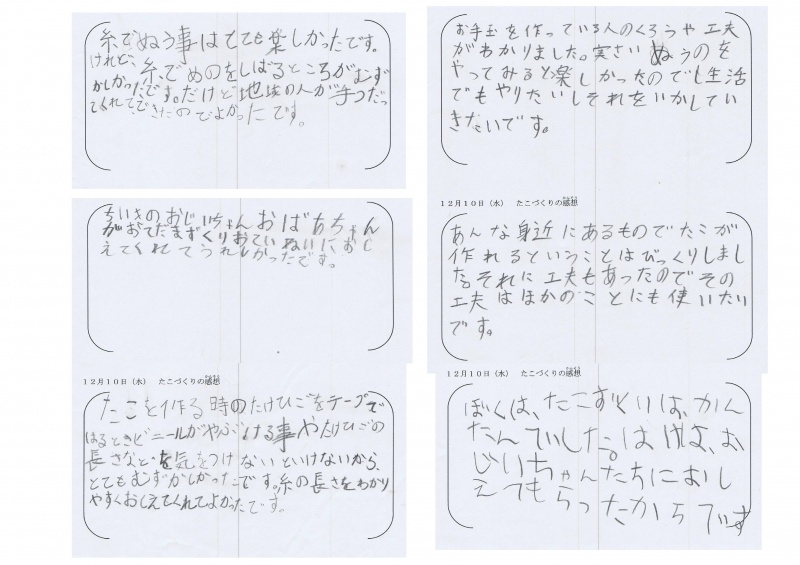 糸でぬう事はとても楽しかったです。
けれど、糸でぬのをしばるところがむず
かしかったです。だけど地域の人が手つだっ
てくれてできたのでよかったです。
ちいきのおじいちゃんおばあちゃん
がおてだまずくりおていねいにおし
えてくれてうれしかったです。
12月10日（水）　たこづくりの感想
たこを作る時のたけひごをテープで
はるときビニールがやぶける事やたけひごの
長さなどを気をつけないといけないから、
とてもむずかしかったです。糸の長さをわかり
やすくおしえてくれてよかったです。
お手玉を作っている人のくろうや工夫
がわかりました。実さいぬうのを
やってみると楽しかったのでし生活
でもやりたいしそれをいかしてい
きたいです。
12月10日（水）　たこづくりの感想
あんな身近にあるものでたこが
作れるということはびっくりしまし
た。それに工夫もあったのでその
工夫はほかのことにも使いたい
です。
12月10日（水）　たこづくりの感想
ぼくは、たこずくりは、かん
たんでした。は、お
じいちゃんたちにおし
えてもらったからです